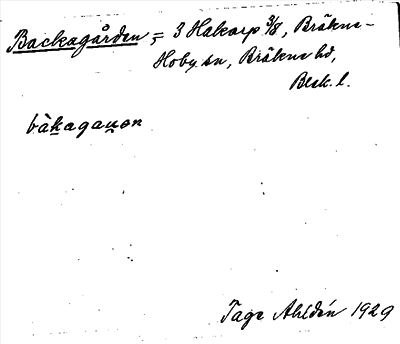 Backagården = 3 Hakarp 3/8, Bräkne-
Hoby sn, Bräkne hd,
Blek. l.
bàkagaṵ̈ən
Tage Ahldén 1929